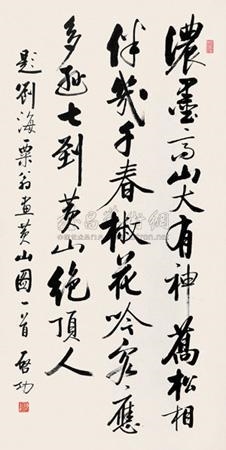 濃墨高山大有神萬松相
伴幾千春椒花吟客應
多遜七到黃山絕頂人
題劉海粟翁畫黃山圖一首 啟功